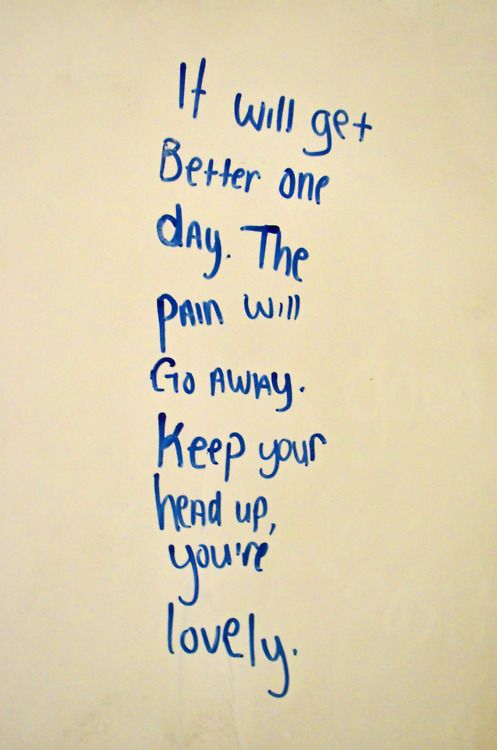 It will get
Better one
day. The
pain will
Go away.
Keep your
head up,
you're
lovely.